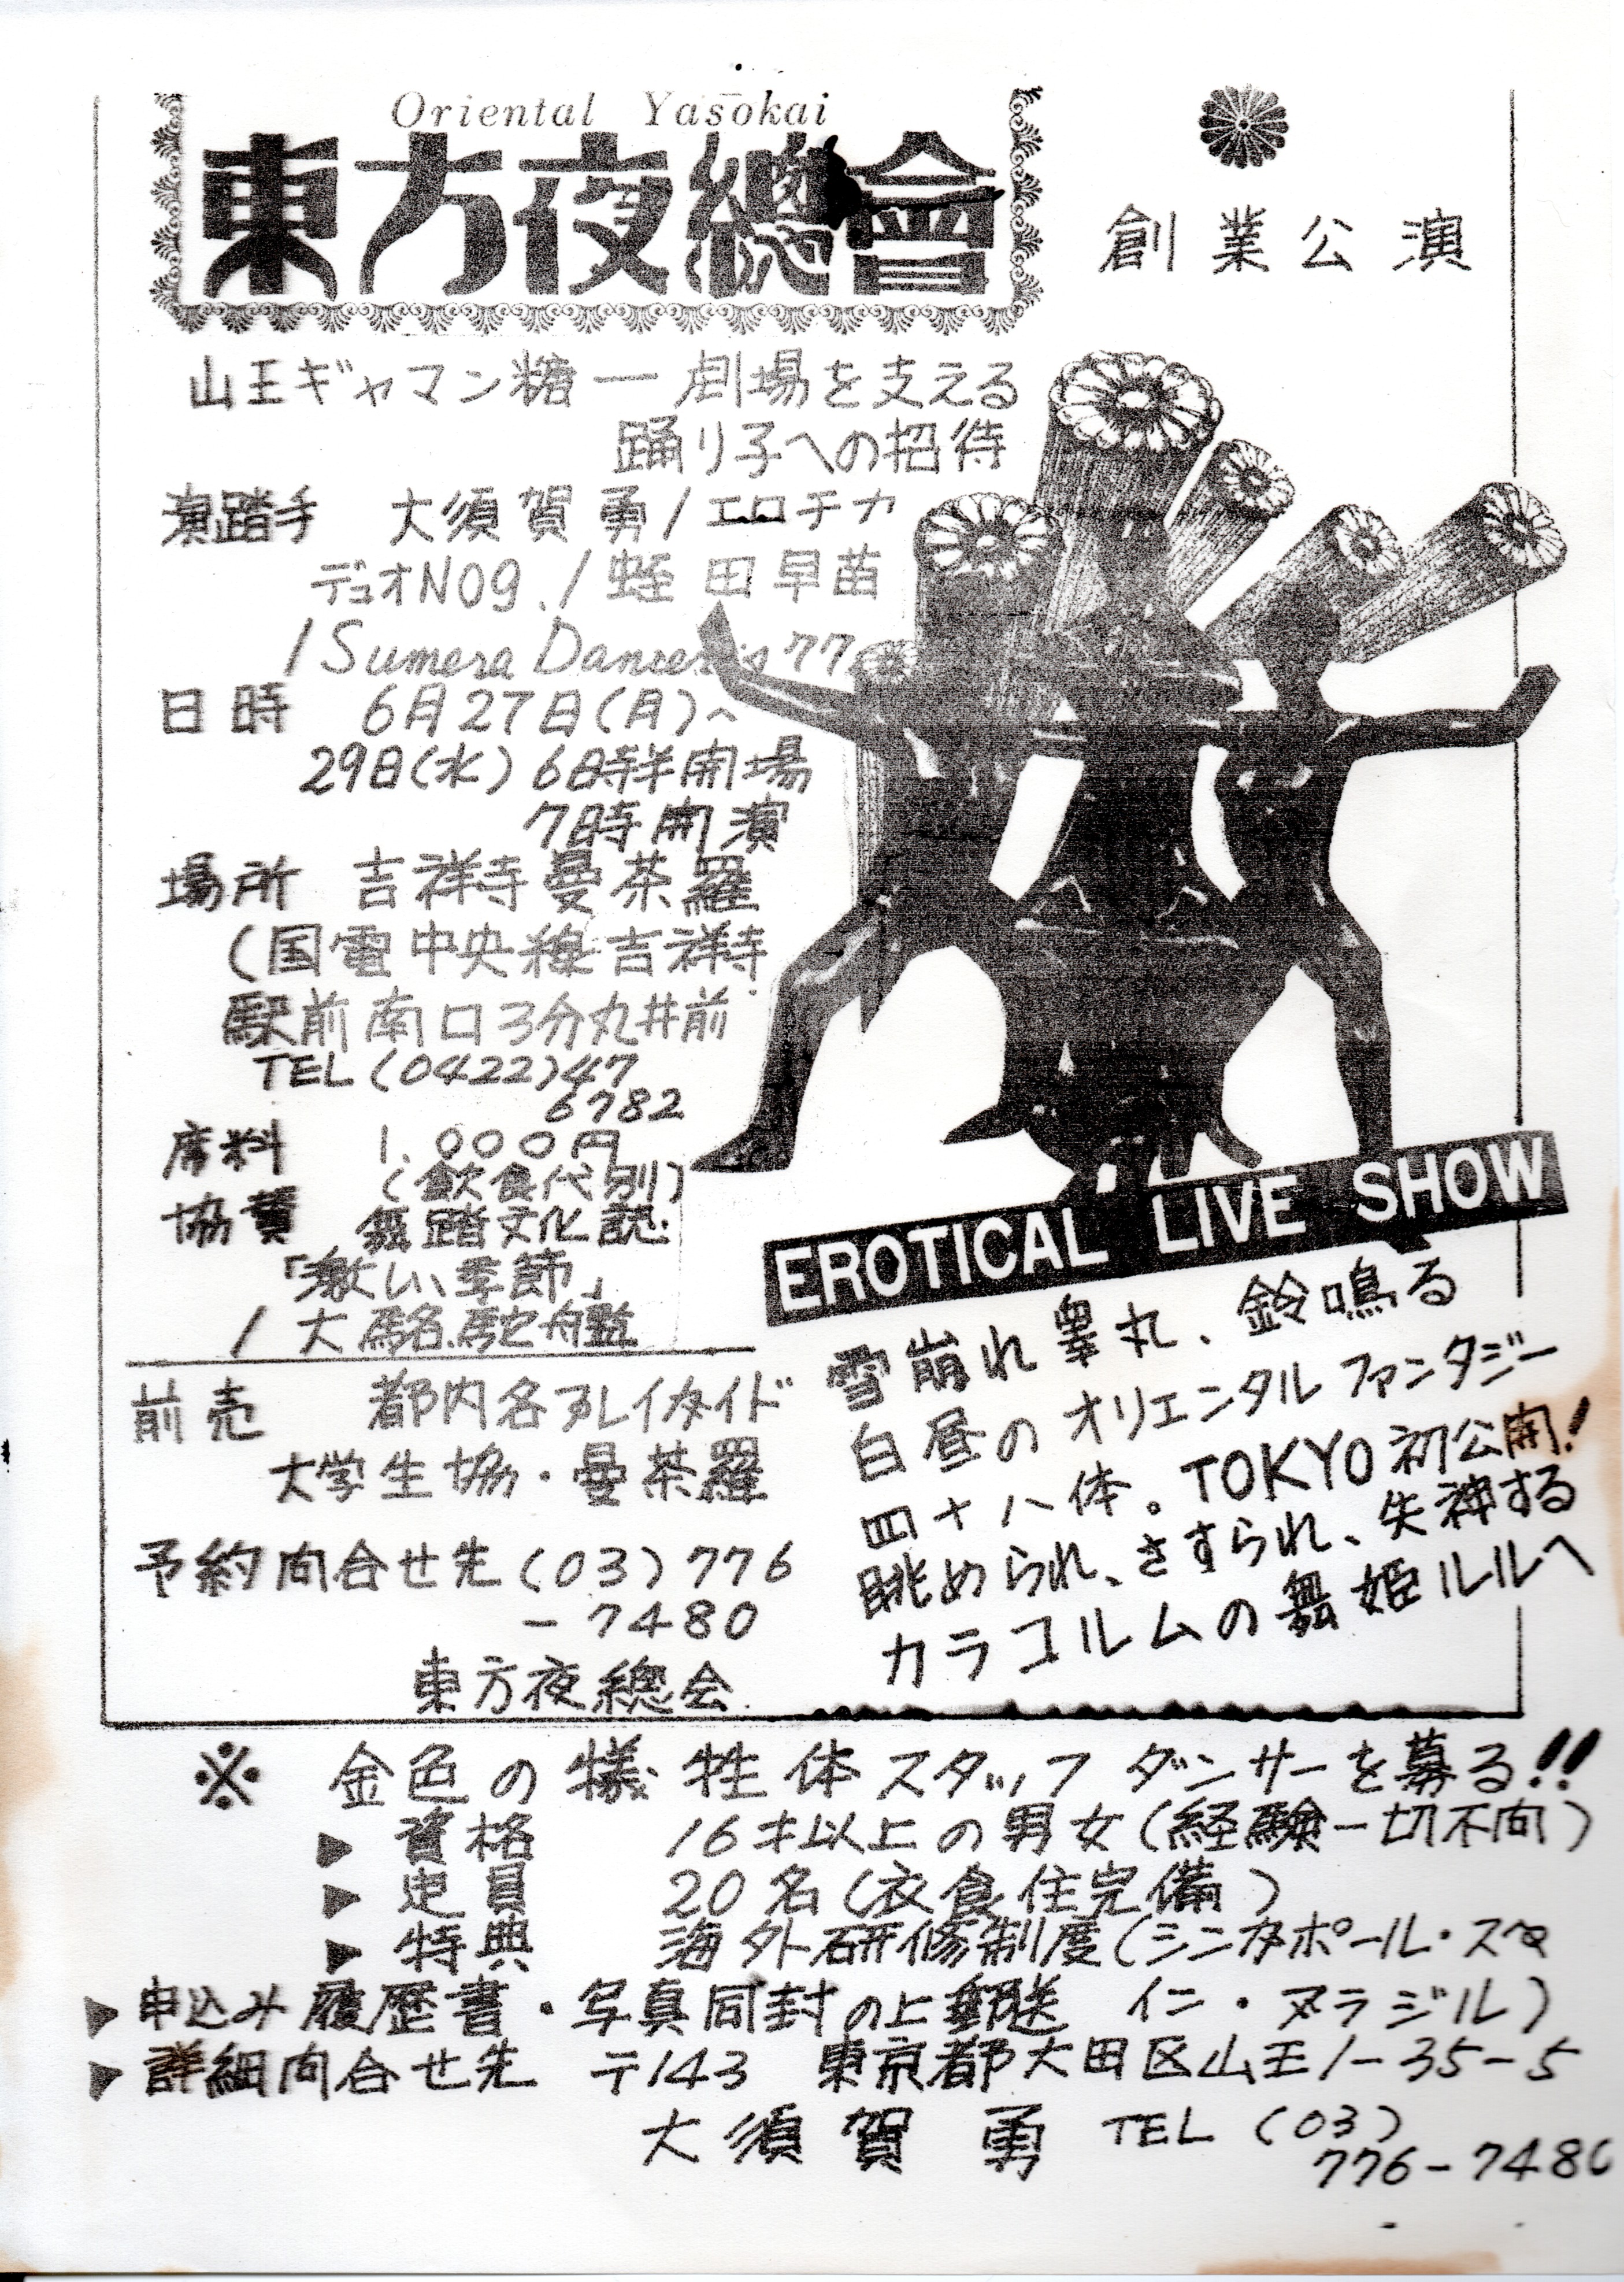 Oriental Yasōkai
東方夜總會
創業公演
山王ギャマン糖一劇場を支える
踊り子への招待
演踏手 大須賀勇/エロチカ
デュオNO9./蛭田早苗
/Sumera Dancer's 77
日時 6月27日(月)〜
29日(水)6時半開場
7時開演
場所 吉祥寺曼荼羅
(国電中央線吉祥寺
駅前南口3分丸井前
TEL(0422)47
6782
席料 1.000円
(飲食代別)
協賛 舞踏文化誌
「激しい季節」
/大駱駝艦
前売 都内各プレイガイド
大学生協・曼荼羅
予約問合せ先(03)776
-7480
東方夜總会
EROTICAL LIVE SHOW
雪崩れ睾丸、鈴鳴る
白昼のオリエンタルファンタジー
四十八体。TOKYO初公開!
眺められ、さすられ、失神する
カラコルムの舞姫ルルへ
※ 金色の犠牲体スタッフダンサーを募る!!
▶ 資格 16才以上の男女(経験一切不問)
▶ 定員 20名(衣食住完備)
▶ 特典 海外研修制度(シンガポール・スペ
イン・ブラジル)
▶ 申込み 履歴書・写真同封の上郵送
▶ 詳細問合せ先 〒143 東京都大田区山王1-35-5
大須賀 勇 TEL (03)
776-7480